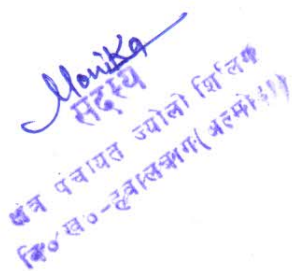 Monika
सदस्य
क्षेत्र पंचायत ज्योली शिलिंग
वि० ख०-हवालबाग (अल्मोड़ा)